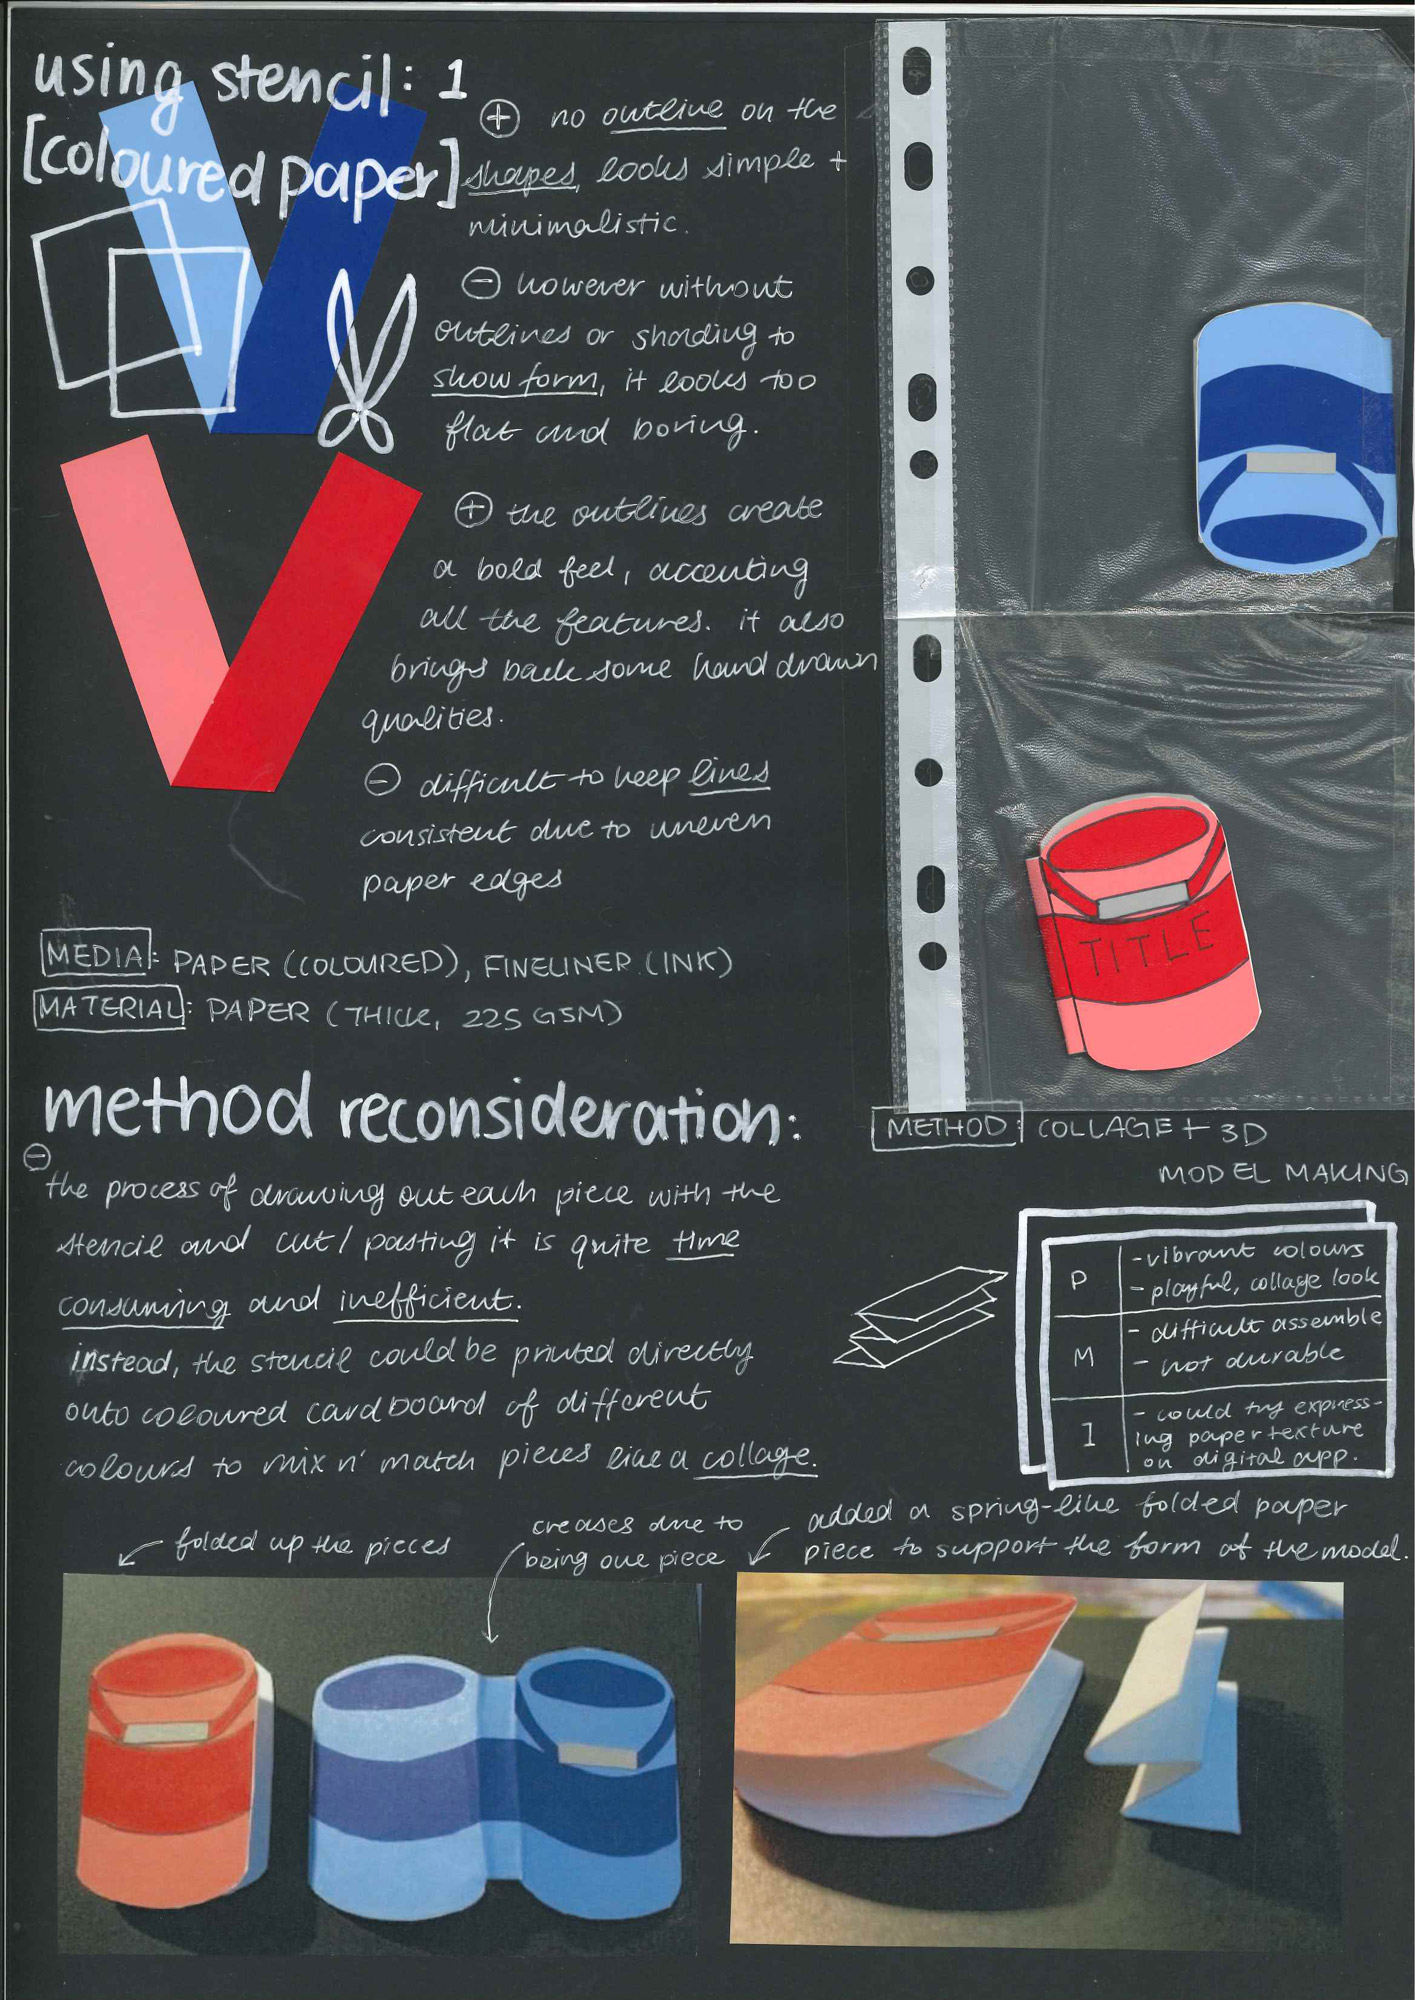 using stencil: 1
[coloured paper]
⊕ no outline on the
shapes, looks simple +
minimalistic.
⊖ however without
outlines or shading to
show form, it looks too
flat and boring.
⊕ the outlines create
a bold feel, accenting
all the features. it also
brings back some hand drawn
qualities.
⊖ difficult to keep lines
consistent due to uneven
paper edges
TITLE
MEDIA: PAPER (COLOURED), FINELINER (INK)
MATERIAL: PAPER (THICK, 225 GSM)
METHOD: COLLAGE + 3D
MODEL MAKING
method reconsideration:
⊖
the process of drawing out each piece with the
stencil and cut/pasting it is quite time
consuming and inefficient.
instead, the stencil could be printed directly
onto coloured cardboard of different
colours to mix n' match pieces like a collage.
P
- vibrant colours
- playful, collage look
M
- difficult assemble
- not durable
I
- could try express-
ing paper texture
on digital app.
folded up the pieces
creases due to
being one piece
added a spring-like folded paper
piece to support the form of the model.